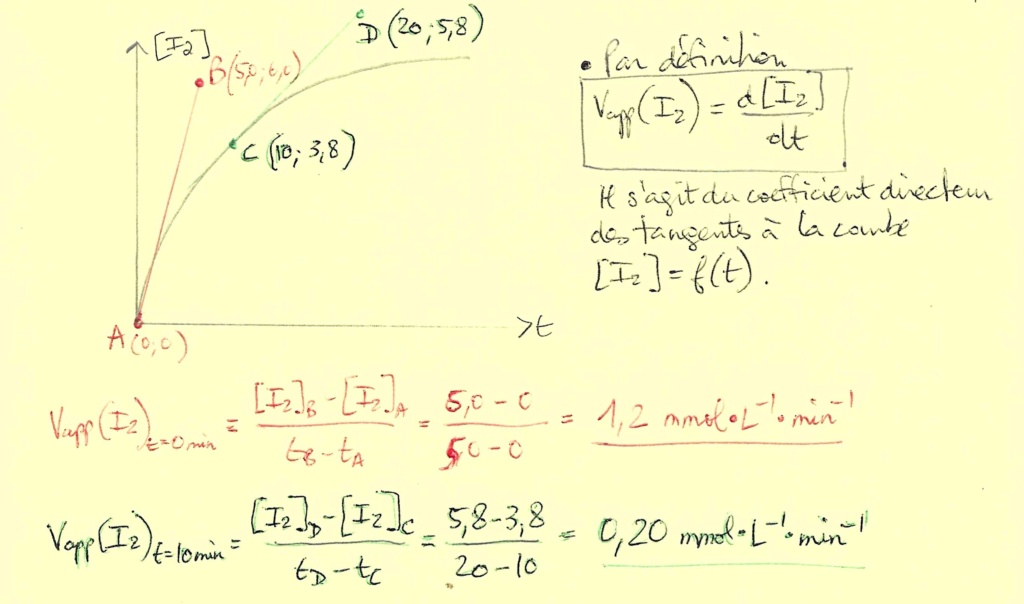 [I₂]
D (20 ; 5,8)
B (5,0 ; 6,0)
C (10 ; 3,8)
A (0 ; 0)
> t
• Par définition
Vapp(I₂) = d[I₂] / dt
Il s'agit du coefficient directeur
des tangentes à la courbe
[I₂] = f(t).
Vapp(I₂)t=0 min = ([I₂]B - [I₂]A) / (tB - tA) = (5,0 - 0) / (50 - 0) = 1,2 mmol•L⁻¹•min⁻¹
Vapp(I₂)t=10 min = ([I₂]D - [I₂]C) / (tD - tC) = (5,8 - 3,8) / (20 - 10) = 0,20 mmol•L⁻¹•min⁻¹